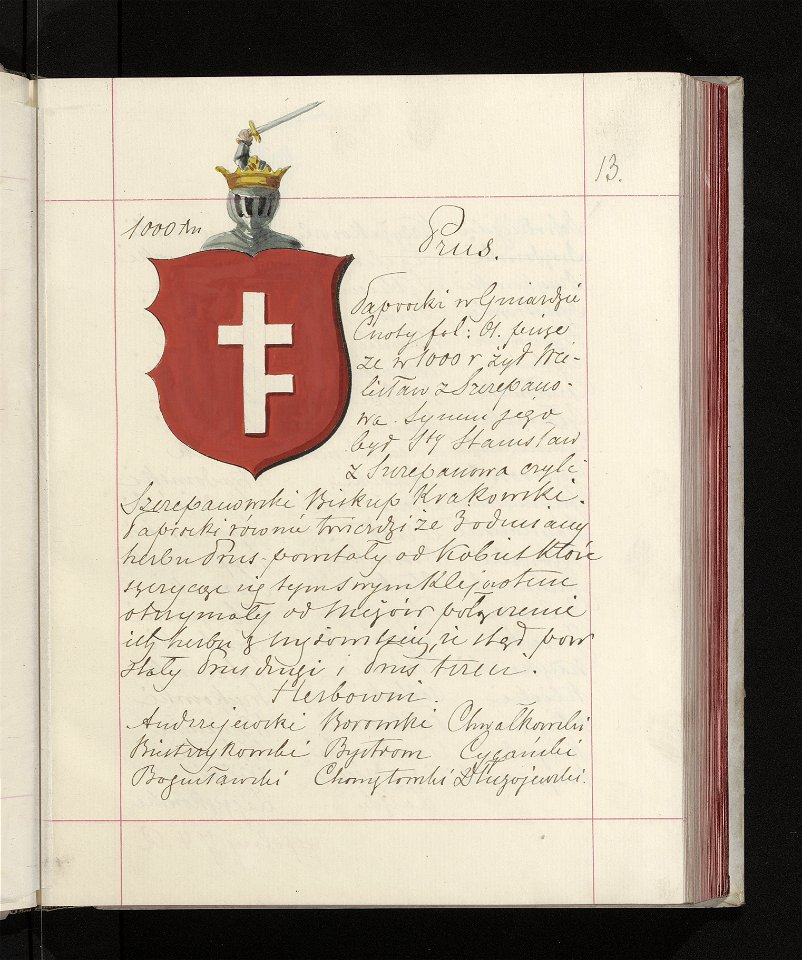 13.
1000 An
Prus.
Paprocki w Gniazdzie
Cnoty fol: 61. pisze
ze w 1000 r żył Wie-
lisław z Szczepano-
wa. Synem jego
był Sty Stanisław
z Szczepanowa czyli
Szczepanowski Biskup Krakowski.
Paprocki rownie twierdzi ze 3 odmiany
herbu Prus powstały od kobiet które
szczycąc się tym swym klejnotem
otrzymały od Mężów połączenie
ich herbu z mężowskiem, że stąd pow
stały Prus drugi i Prus trzeci.
Herbowni.
Andrzejewski Borowski Chwałkowski
Bystrom Cygański
Bogusławski Chomętowski Długojewski.